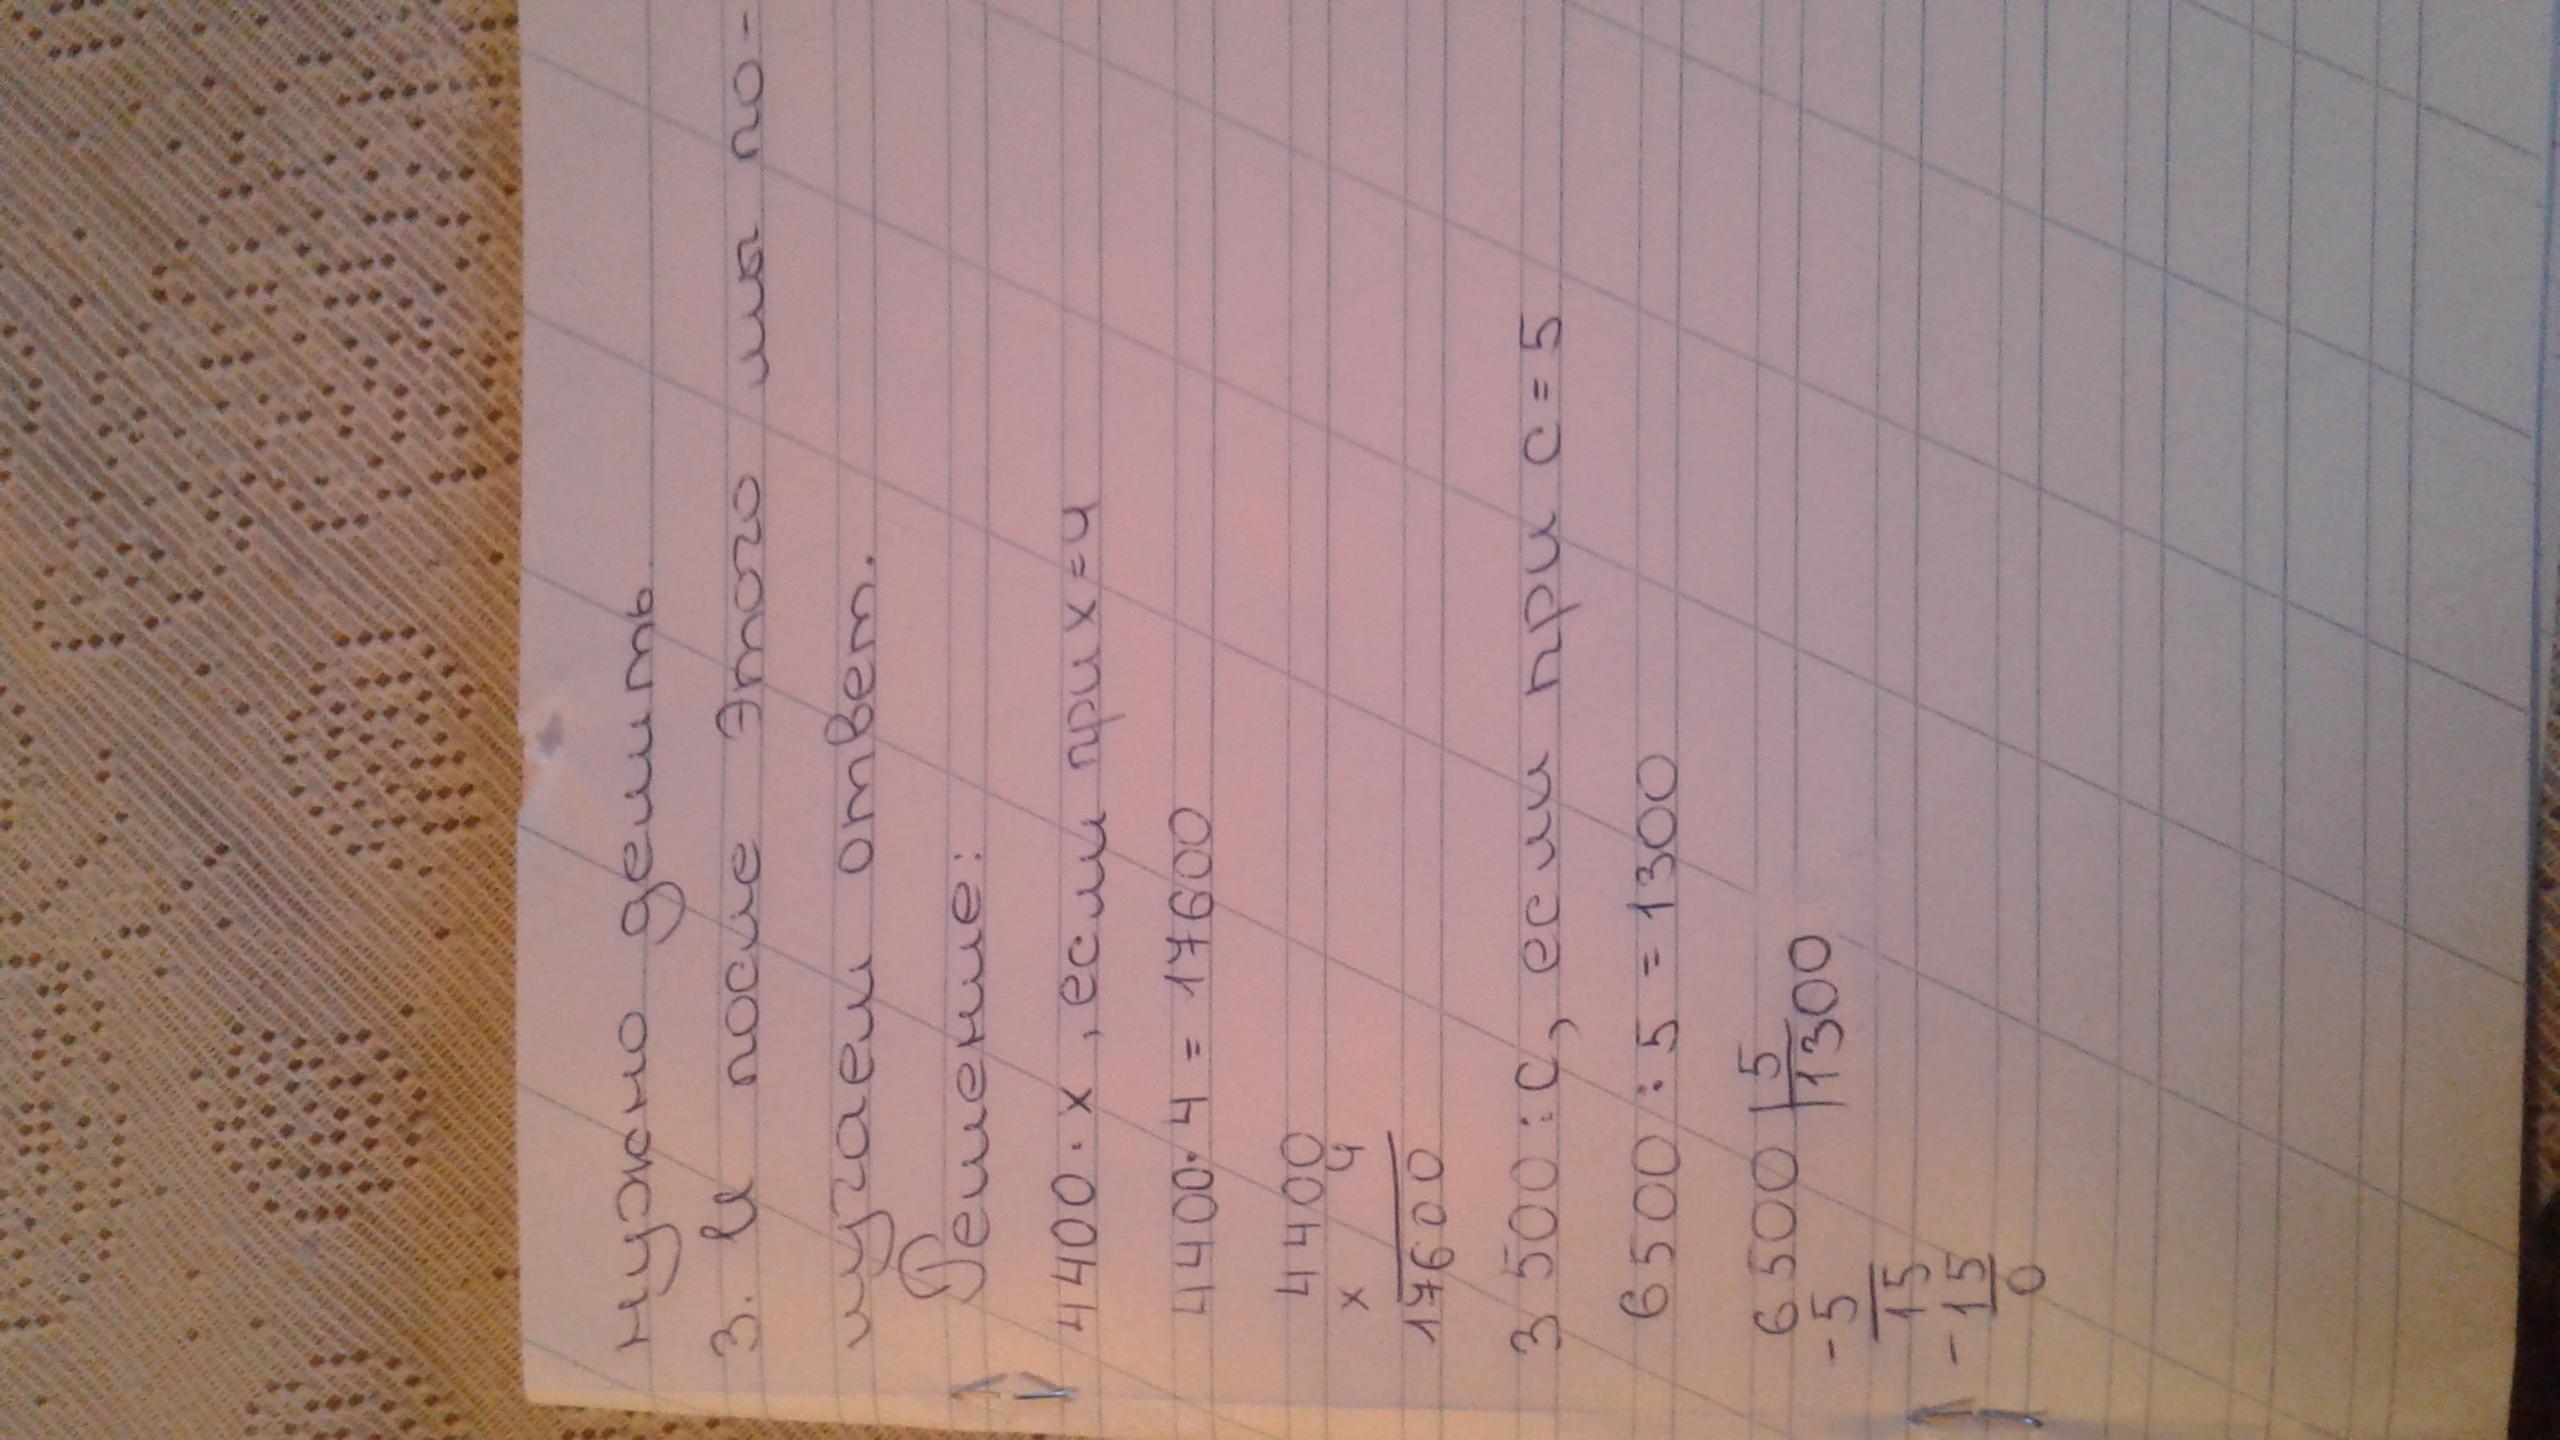 нужно делить.
3. И после этого мы по-
лучаем ответ.
Решение:
4400 · х, если при х=4
4400 · 4 = 17600
4400
х 4
17600
3 500 : с, если при с=5
6500 : 5 = 1300
6500 | 5
-5 1300
15
-15
0